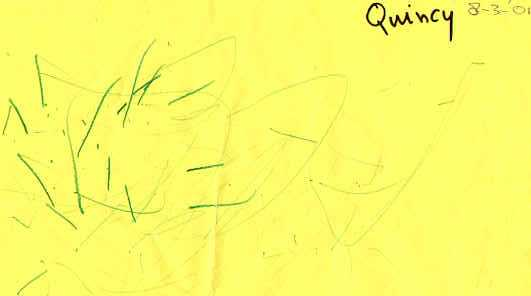 Quincy 8-3-'01